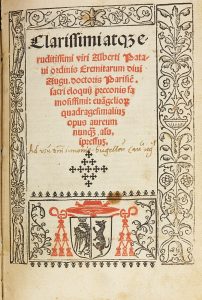 Clarissimi atqȝ e
ruditissimi viri Alberti Pata
ui ordinis Eremitarum diui
Augu. doctoris Parisiẽ.
sacri eloquij preconis fa
mosissimi: euãgelioꝝ
quadragesimaliuȝ
opus aureum
nunqȝ als̃
ipressuȝ.
Ad